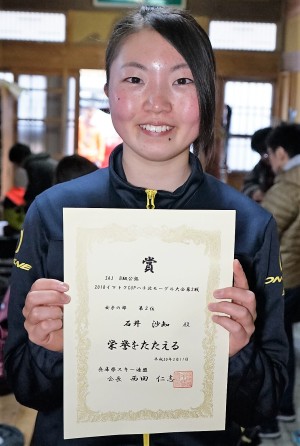 賞
SAJ B級公認
2018イマトクCUPハチ北モーグル大会第2戦
女子の部 第2位
石井 沙知 殿
栄誉をたたえる
平成30年2月11日
兵庫県スキー連盟
会長 西田 仁志